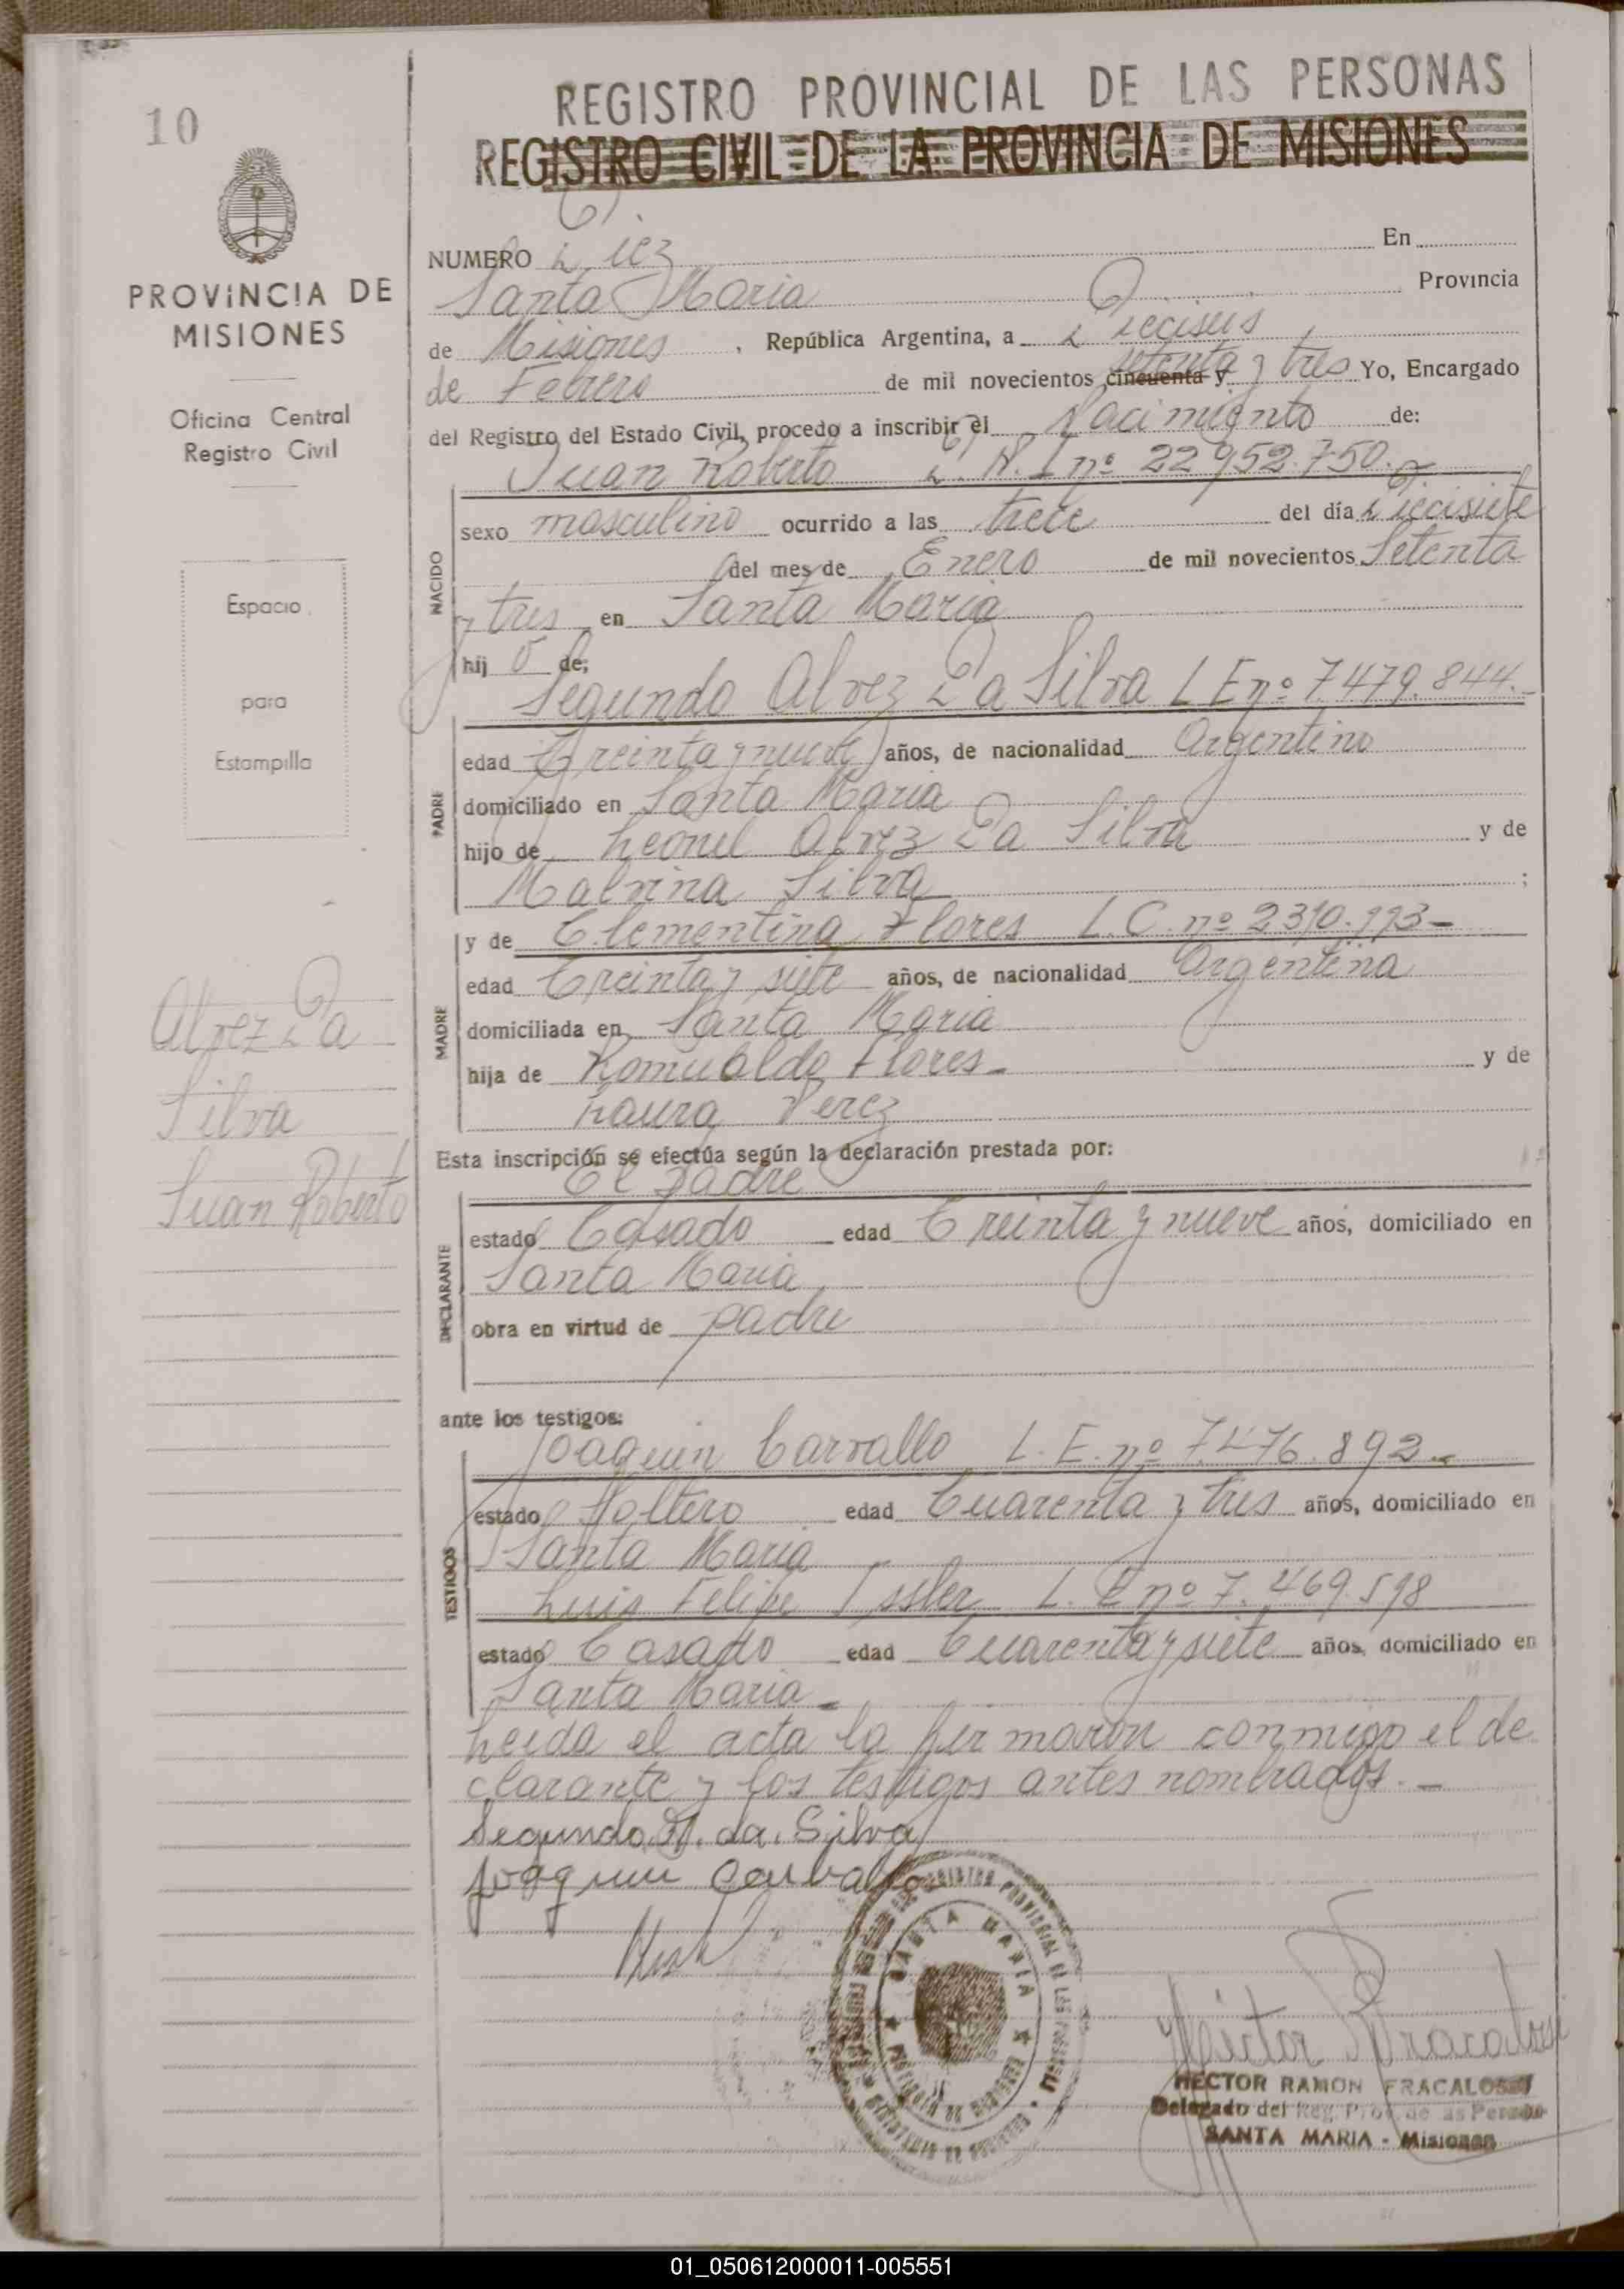 10
REGISTRO PROVINCIAL DE LAS PERSONAS
REGISTRO CIVIL DE LA PROVINCIA DE MISIONES
PROVINCIA DE
MISIONES
Oficina Central
Registro Civil
Espacio
para
Estampilla
Alvez Da
Silva
Juan Roberto
NUMERO Diez En
Santa Maria Provincia
de Misiones , República Argentina, a Dieciseis
de Febrero de mil novecientos cincuenta y setenta y tres Yo, Encargado
del Registro del Estado Civil, procedo a inscribir el Nacimiento de:
Juan Roberto D.N.I nº 22952.750.
NACIDO
sexo masculino ocurrido a las trece del día Diecisiete
del mes de Enero de mil novecientos Setenta
y tres en Santa Maria
hij o de:
Segundo Alvez Da Silva L E nº 7.479.844.-
PADRE
edad Treinta y nueve años, de nacionalidad Argentino
domiciliado en Santa Maria
hijo de Leonel Alvez Da Silva y de
Malvina Silva ;
y de Clementina Flores L.C. nº 2310.193-
MADRE
edad Treinta y siete años, de nacionalidad Argentina
domiciliada en Santa Maria
hija de Romualdo Flores- y de
Laura Perez
Esta inscripción se efectúa según la declaración prestada por:
El padre
DECLARANTE
estado Casado edad Treinta y nueve años, domiciliado en
Santa Maria
obra en virtud de padre
ante los testigos:
Joaquin Carvallo L.E. nº 7.476.892.-
TESTIGOS
estado Soltero edad Cuarenta y tres años, domiciliado en
Santa Maria
Luis Felipe Issler L.E nº 7.469.598
estado Casado edad Cuarenta y siete años, domiciliado en
Santa Maria-
Leida el acta la firmaron conmigo el de
clarante y los testigos antes nombrados.-
Segundo A. da. Silva
Joaquin Carvallo
SANTA MARIA
Hector R Fracalossi
HECTOR RAMON FRACALOSSI
Delegado del Reg. Prov. de las Personas
SANTA MARIA - Misiones
01_050612000011-005551